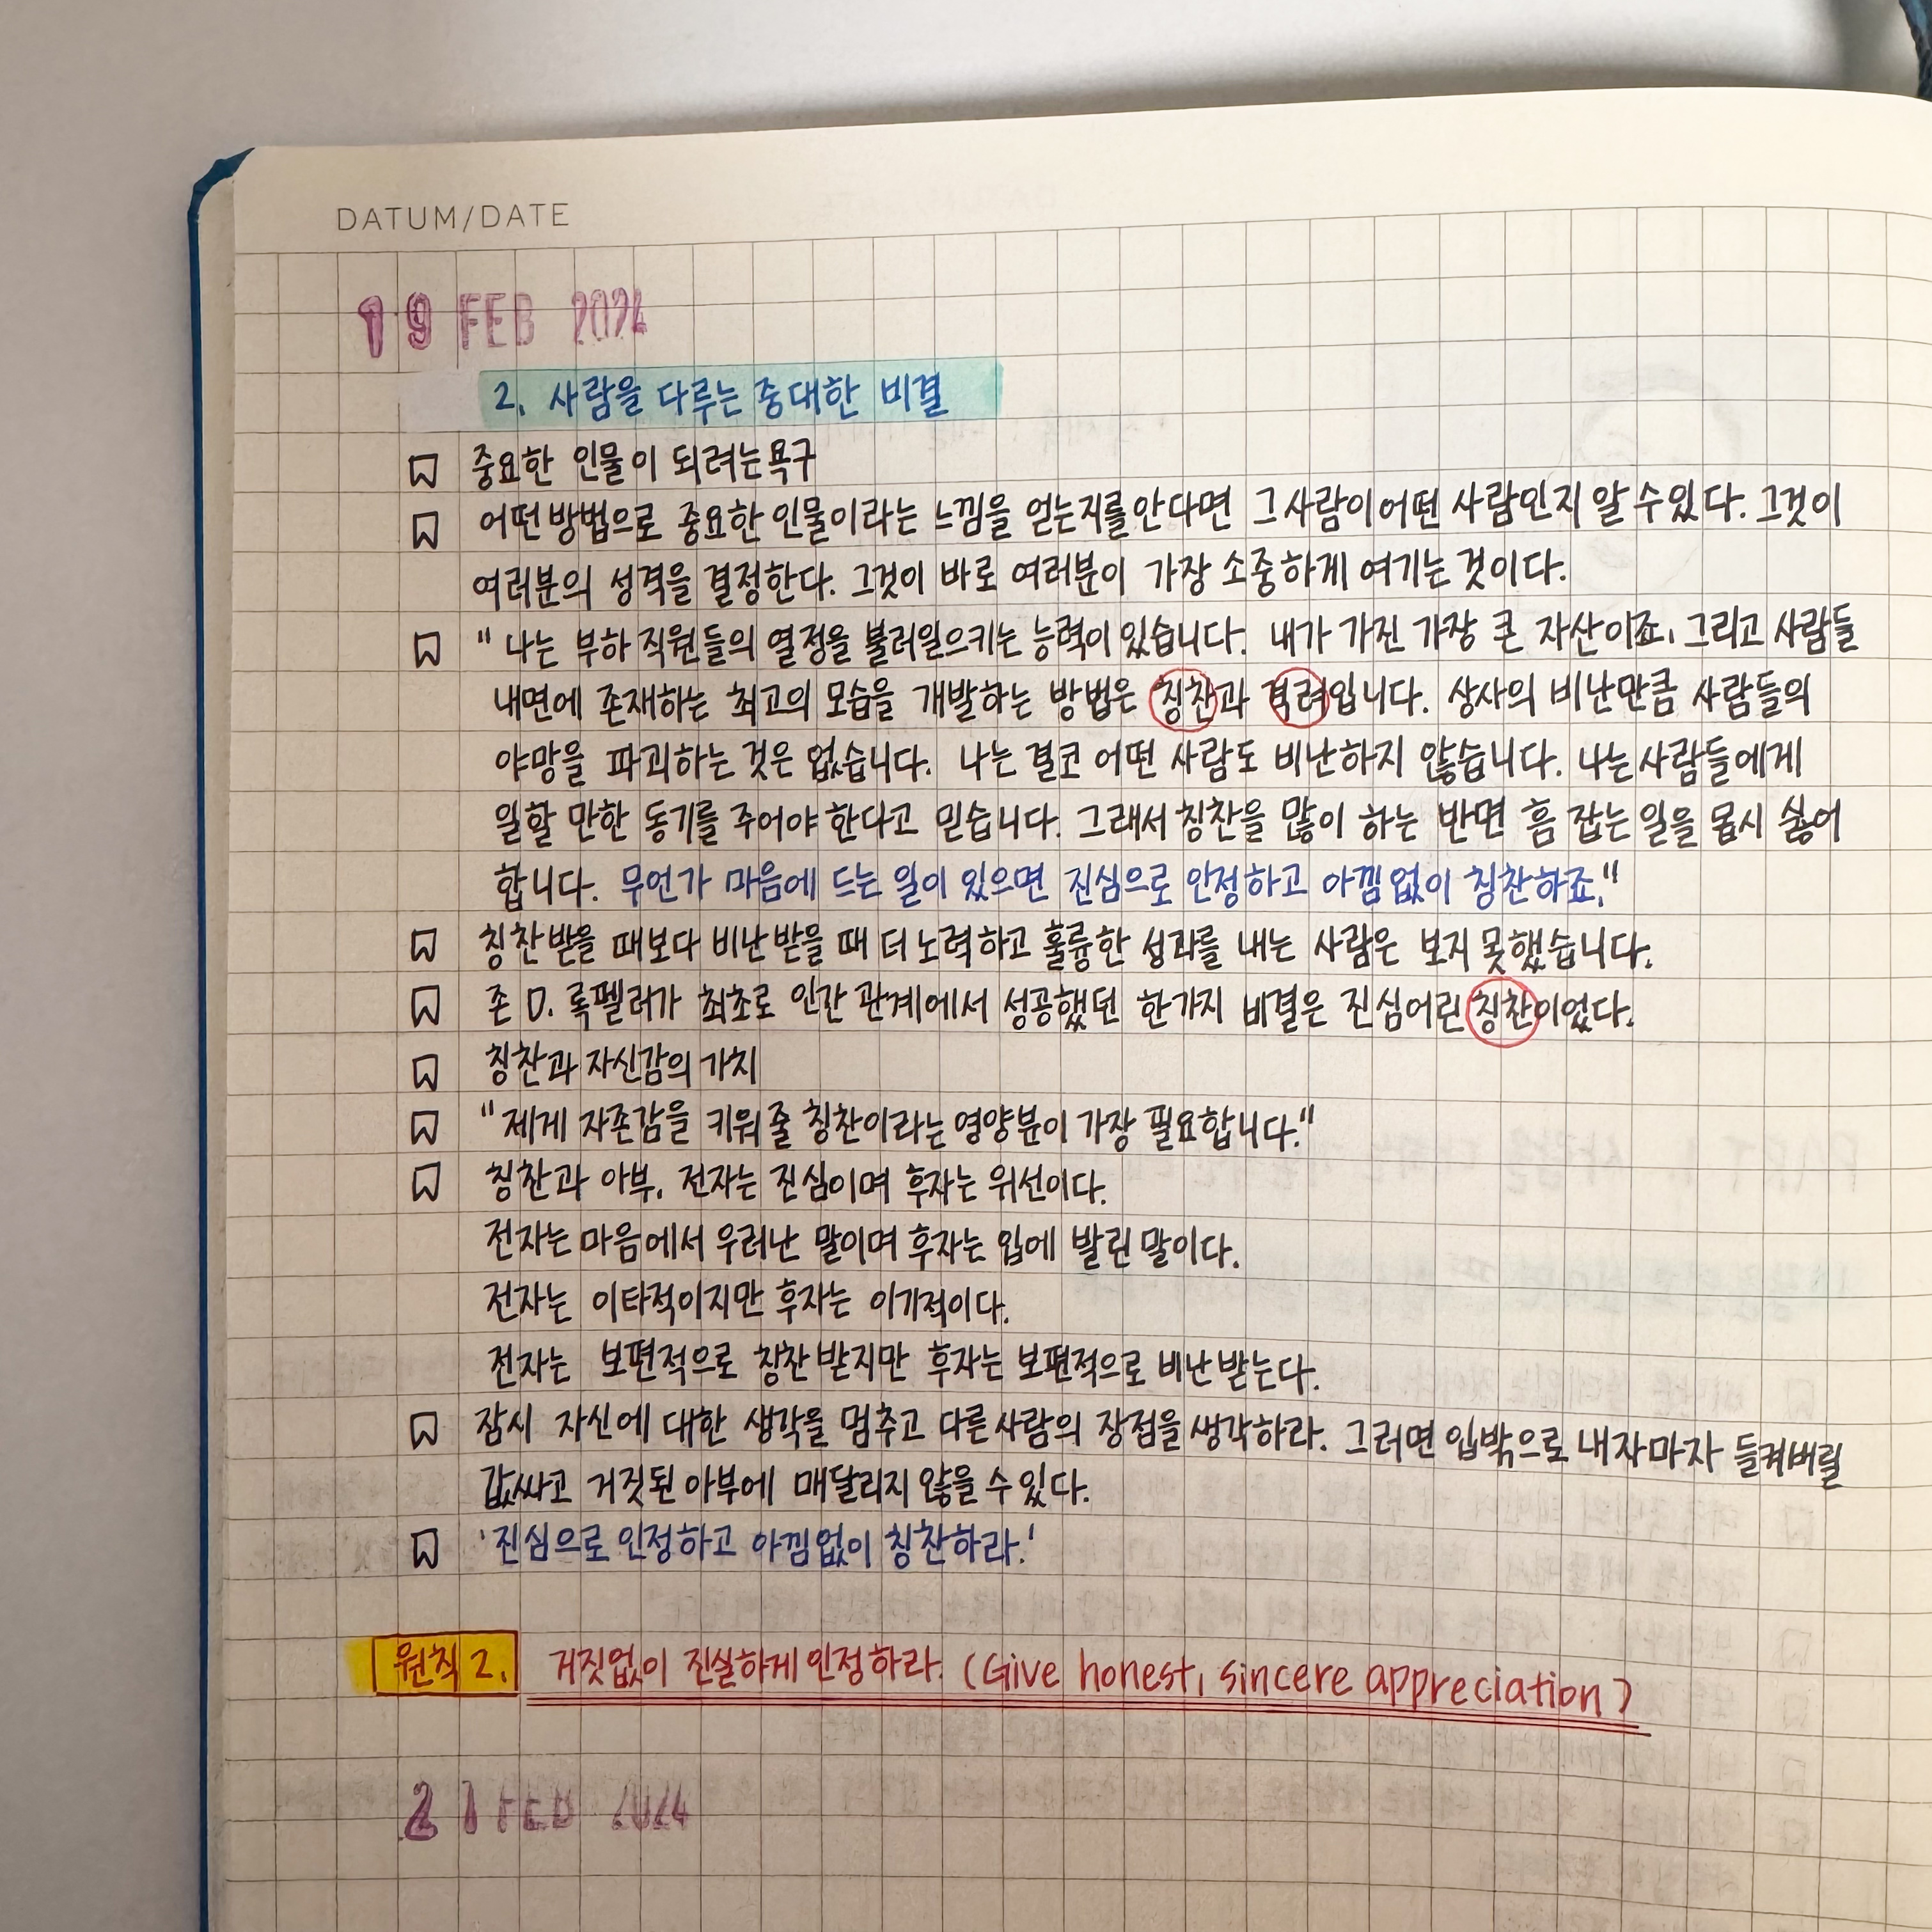 DATUM/DATE
19 FEB 2024
2. 사람을 다루는 중대한 비결
중요한 인물이 되려는 욕구
어떤 방법으로 중요한 인물이라는 느낌을 얻는지를 안다면 그 사람이 어떤 사람인지 알 수 있다. 그것이
여러분의 성격을 결정한다. 그것이 바로 여러분이 가장 소중하게 여기는 것이다.
"나는 부하 직원들의 열정을 불러일으키는 능력이 있습니다. 내가 가진 가장 큰 자산이죠. 그리고 사람들
내면에 존재하는 최고의 모습을 개발하는 방법은 칭찬과 격려입니다. 상사의 비난만큼 사람들의
야망을 파괴하는 것은 없습니다. 나는 결코 어떤 사람도 비난하지 않습니다. 나는 사람들에게
일할 만한 동기를 주어야 한다고 믿습니다. 그래서 칭찬을 많이 하는 반면 흠 잡는 일을 몹시 싫어
합니다. 무언가 마음에 드는 일이 있으면 진심으로 인정하고 아낌없이 칭찬하죠."
칭찬 받을 때보다 비난 받을 때 더 노력하고 훌륭한 성과를 내는 사람은 보지 못했습니다.
존 D. 록펠러가 최초로 인간 관계에서 성공했던 한가지 비결은 진심어린 칭찬이었다.
칭찬과 자신감의 가치
"제게 자존감을 키워 줄 칭찬이라는 영양분이 가장 필요합니다."
칭찬과 아부. 전자는 진심이며 후자는 위선이다.
전자는 마음에서 우러난 말이며 후자는 입에 발린 말이다.
전자는 이타적이지만 후자는 이기적이다.
전자는 보편적으로 칭찬 받지만 후자는 보편적으로 비난 받는다.
잠시 자신에 대한 생각을 멈추고 다른 사람의 장점을 생각하라. 그러면 입밖으로 내자마자 들켜버릴
값싸고 거짓된 아부에 매달리지 않을 수 있다.
'진심으로 인정하고 아낌없이 칭찬하라.'
원칙 2. 거짓없이 진실하게 인정하라. (Give honest, sincere appreciation)
21 FEB 2024